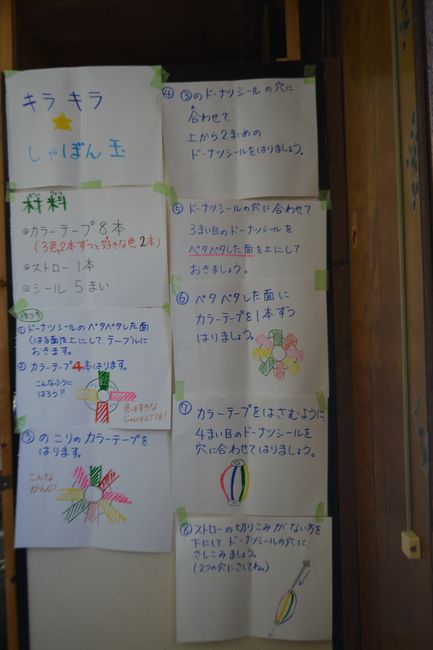 キラキラ
しゃぼん玉
材料
ざい りょう
◎カラーテープ8本
(3色2本ずつと好きな色2本)
◎ストロー1本
◎シール5まい
作り方
①ドーナツシールのペタペタした面
(はる面)を上にしてテーブルに
おきます。
②カラーテープ4本はります。
こんなふうに
はろう!!
色はすきな
じゅんばんでOK!
③のこりのカラーテープを
はります。
こんな
かんじ!
④③のドーナツシールの穴に
合わせて
上から2まいめの
ドーナツシールをはりましょう。
⑤ドーナツシールの穴に合わせて
3まい目のドーナツシールを
ペタペタした面を上にして
おきましょう。
⑥ペタペタした面に
カラーテープを1本ずつ
はりましょう。
⑦カラーテープをはさむように
4まい目のドーナツシールを
穴に合わせてはりましょう。
⑧ストローの切りこみがない方を
下にしてドーナツシールの穴に
さしこみましょう。
(2つの穴にさしてね。)